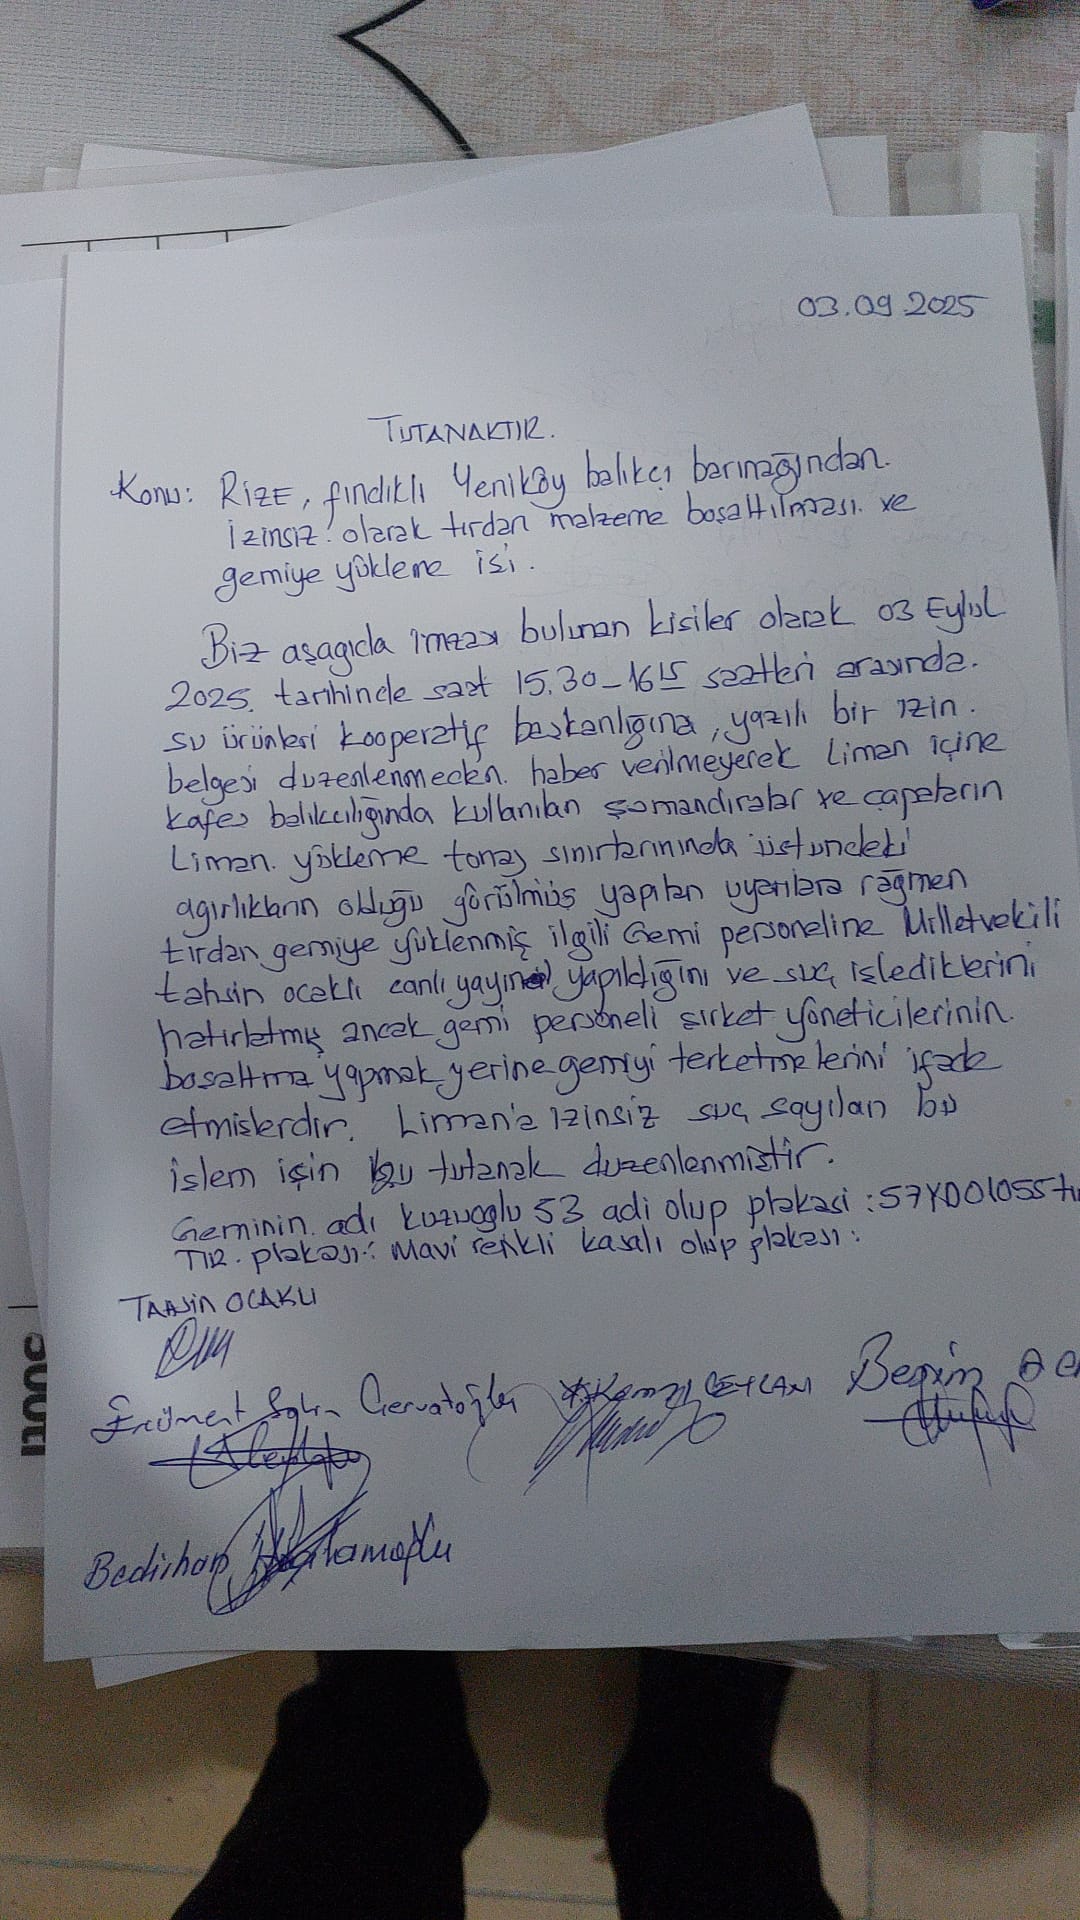 03.09.2025
TUTANAKTIR.
Konu: RİZE, fındıklı Yeniköy balıkçı barınağından.
İzinsiz olarak tırdan malzeme boşaltılması ve
gemiye yükleme isi.
Biz aşagıda imzası bulunan kisiler olarak 03 Eylül
2025. tarihinde saat 15.30-1615 saatleri arasında.
su ürünleri kooperatif başkanlığına, yazılı bir izin.
belgesi duzenlenmeden. haber verilmeyerek Liman içine
kafes balıkcılığında kullanılan şamandıralar ve çapaların
Liman. yükleme tonaj sınırlarınında üstundeki
agırlıkların olduğu görülmüş yapılan uyarılara rağmen
tırdan gemiye yüklenmiş ilgili Gemi personeline Milletvekili
tahsin ocaklı canlı yayın yapıldığını ve suç işlediklerini
hatırlatmış ancak gemi personeli sırket yöneticilerinin.
bosaltma yapmak yerine gemiyi terketmelerini ifade
etmislerdir. Liman'a izinsiz suç sayılan bu
islem için bu tutanak duzenlenmistir.
Geminin. adı kuzuoglu 53 adi olup plakasi: 57YD01055
TIR. plakası: Mavi renkli kasalı olup plakası:
TAHSİN OCAKLI
Ercüment Gervatoğlu
CEYLAN Bedirhan